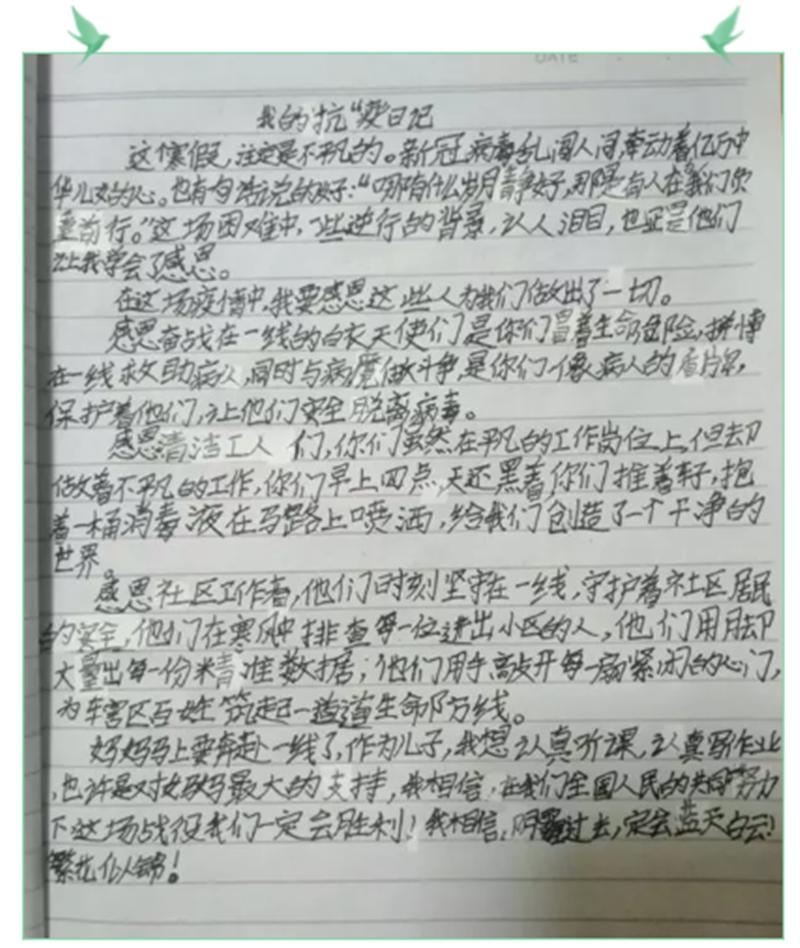 DATE
我的抗“疫”日记
这个寒假，注定是不平凡的。新冠病毒乱闯人间，牵动着亿万中
华儿女的心。也有句话说的好：“哪有什么岁月静好，那是有人在我们负
重前行。”这场困难中，一些逆行的背景，让人泪目，也正是他们
让我学会了感恩。
在这场疫情中，我要感恩这些人为我们做出了一切。
感恩奋战在一线的白衣天使们是你们冒着生命危险，拼博
在一线救助病人，同时与病魔做斗争，是你们像病人的盾片，
保护着他们，让他们安全脱离病毒。
感恩清洁工人们，你们虽然在平凡的工作岗位上，但却
做着不平凡的工作，你们早上四点，天还黑着你们推着车子，抱
着一桶消毒液在马路上喷洒，给我们创造了一个干净的
世界。
感恩社区工作者，他们时刻坚守在一线，守护着社区居民
的安全，他们在寒风中排查每一位进出小区的人，他们用脚
丈量出每一份精准数据；他们用手敲开每一扇紧闭的心门，
为辖区百姓筑起一道道生命防线。
妈妈马上要奔赴一线了，作为儿子，我想认真听课，认真写作业
，也许是对妈妈最大的支持，我相信，在我们全国人民的共同努力
下这场战役我们一定会胜利！我相信，阴霾过去，定会蓝天白云！
繁花似锦！